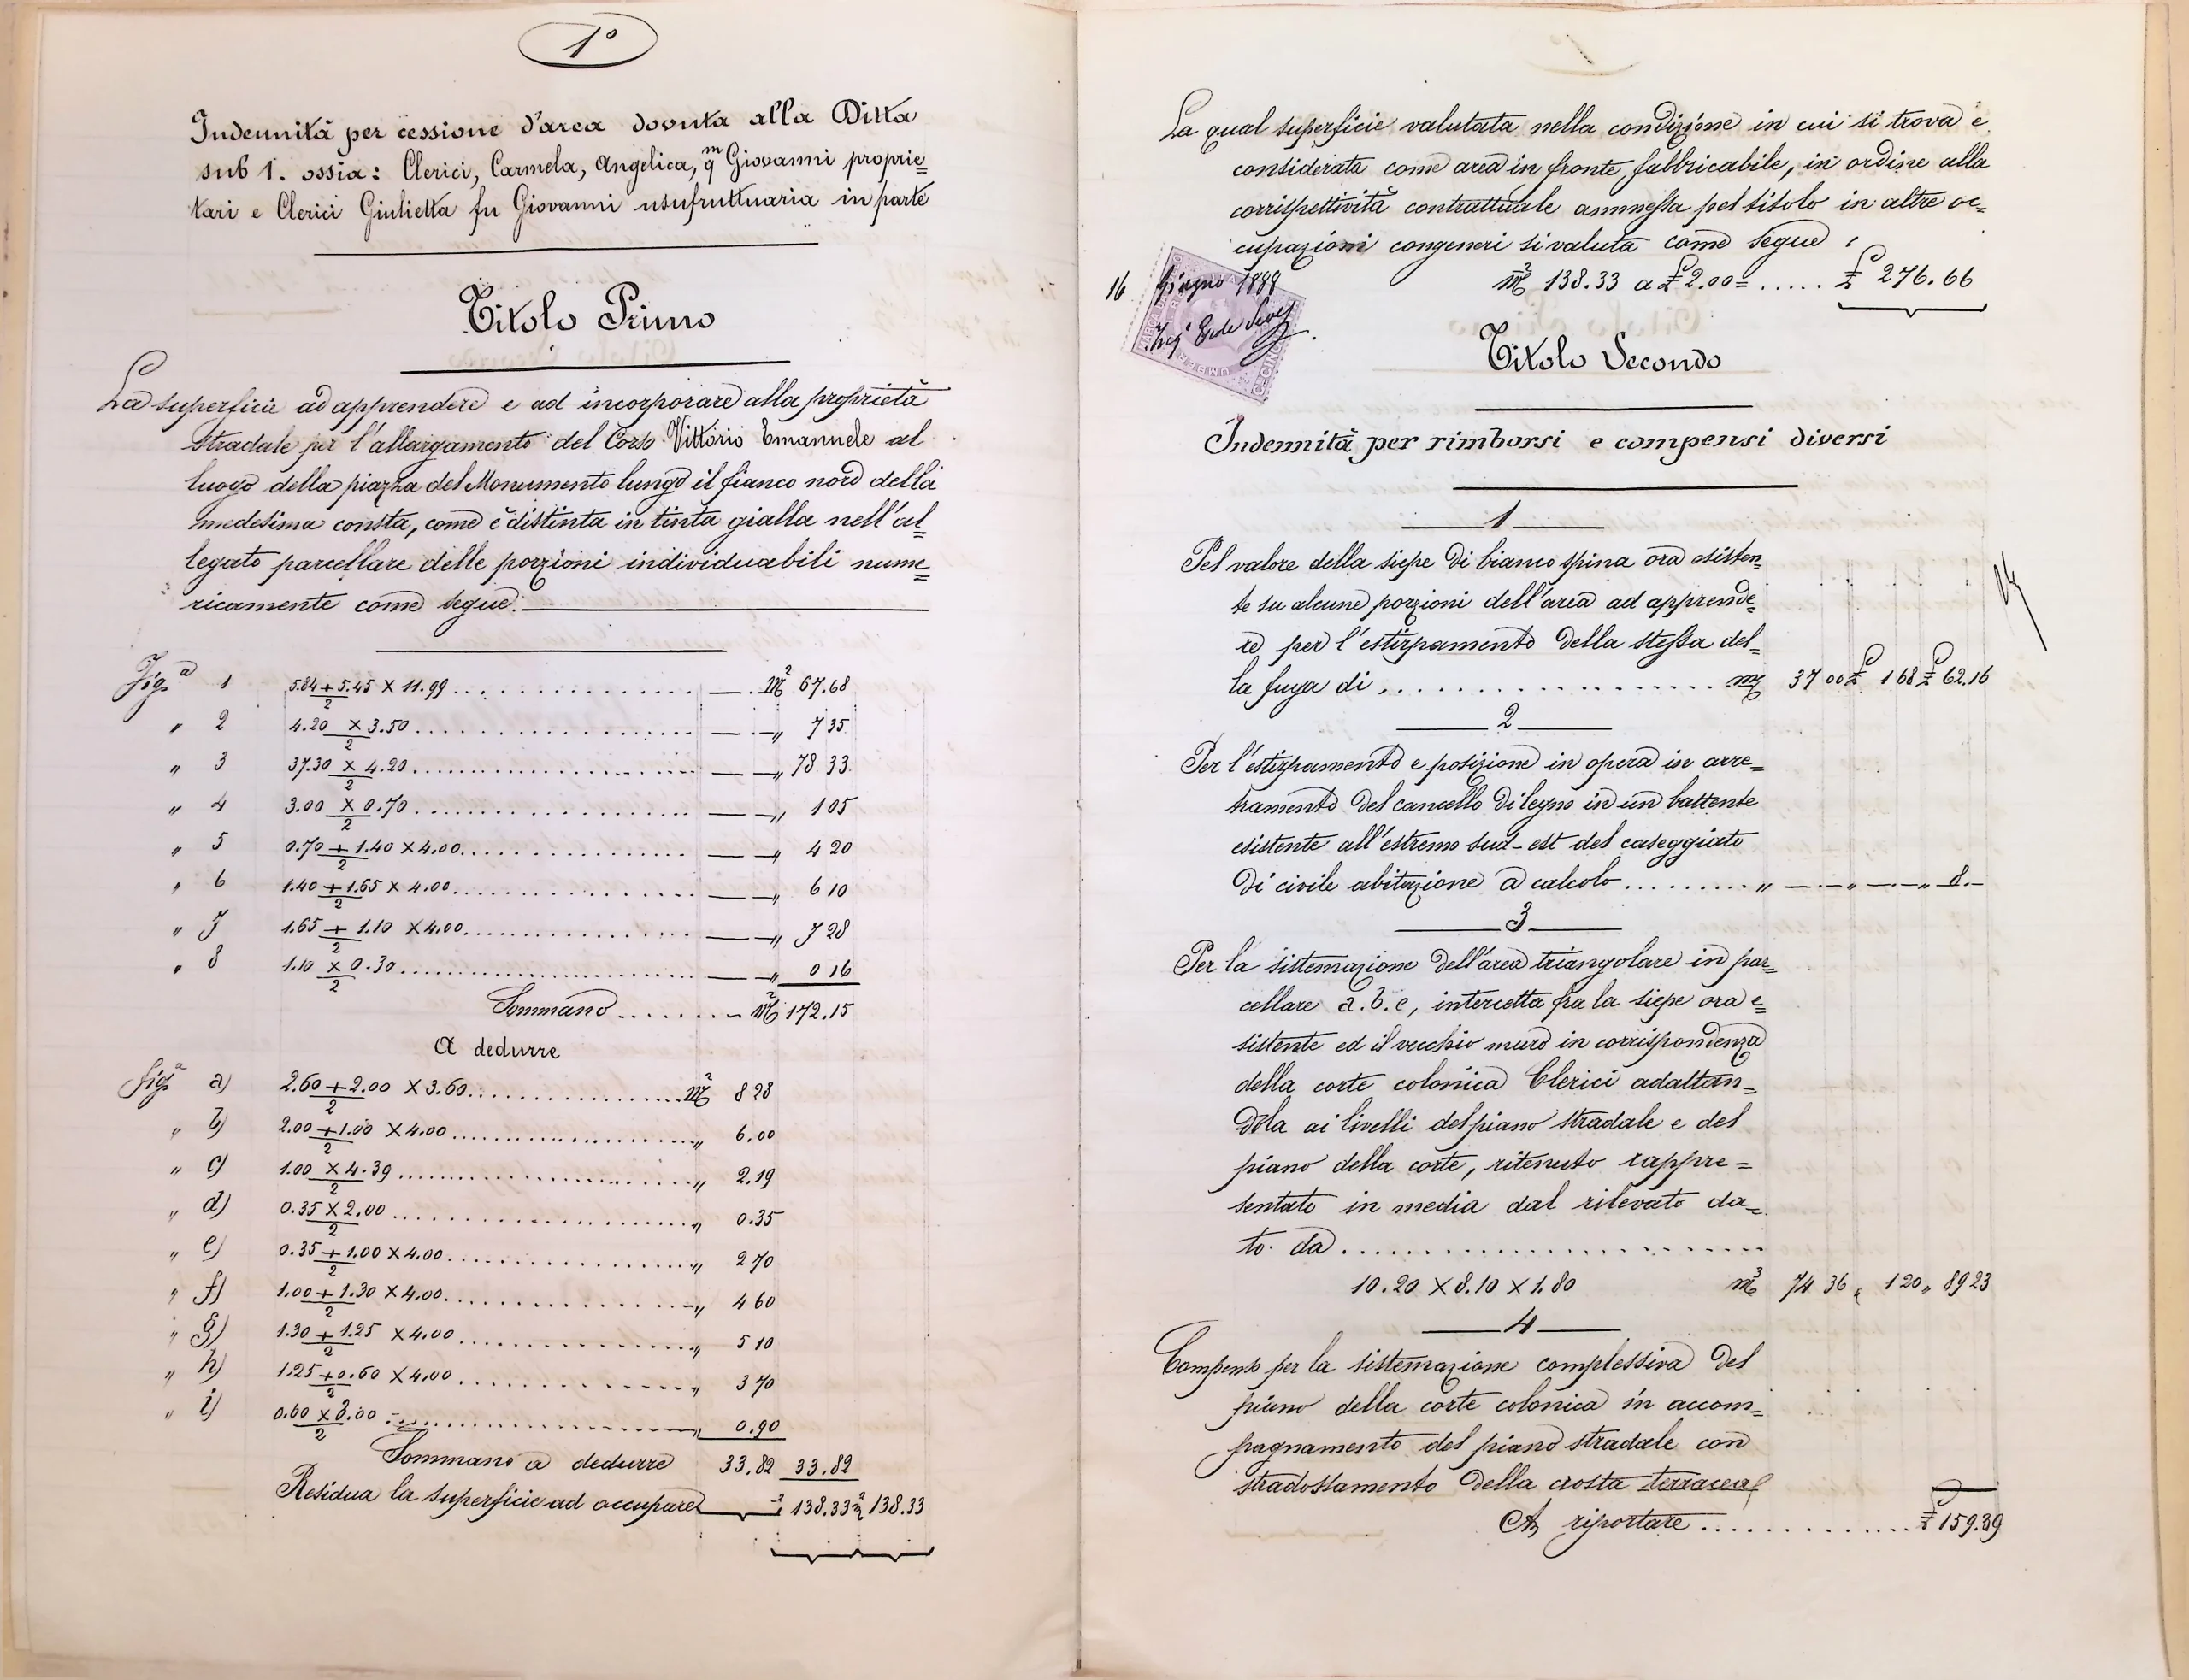 1°
Indennità per cessione d'area dovuta alla Ditta
sub 1. ossia: Clerici, Carmela, Angelica, qm Giovanni proprie=
tari e Clerici Giulietta fu Giovanni usufruttuaria in parte
Titolo Primo
La superficie ad apprendere e ad incorporare alla proprietà
stradale per l'allargamento del Corso Vittorio Emanuele al
luogo della piazza del Monumento lungo il fianco nord della
medesima consta, come è distinta in tinta gialla nell'al=
legato parcellare delle porzioni individuabili nume=
ricamente come segue.
Figa 1 5.84+5.45/2 × 11.99 ..... M2 67.68
" 2 4.20 × 3.50/2 ..... " 7 35
" 3 37.30 × 4.20/2 ..... " 78 33
" 4 3.00 × 0.70/2 ..... " 1 05
" 5 0.70+1.40/2 × 4.00 ..... " 4 20
" 6 1.40+1.65/2 × 4.00 ..... " 6 10
" 7 1.65+1.10/2 × 4.00 ..... " 7 28
" 8 1.10 × 0.30/2 ..... " 0 16
Sommano ..... M2 172.15
A dedurre
figa a) 2.60+2.00/2 × 3.60 ..... M2 8 28
" b) 2.00+1.00/2 × 4.00 ..... " 6.00
" c) 1.00 × 4.39/2 ..... " 2.19
" d) 0.35 × 2.00/2 ..... " 0.35
" e) 0.35+1.00/2 × 4.00 ..... " 2 70
" f) 1.00+1.30/2 × 4.00 ..... " 4 60
" g) 1.30+1.25/2 × 4.00 ..... " 5 10
" h) 1.25+0.60/2 × 4.00 ..... " 3 70
" i) 0.60 × 3.00/2 ..... " 0.90
Sommano a dedurre 33.82 33.82
Residua la superficie ad occupare 138.33 m2 138.33
La qual superficie valutata nella condizione in cui si trova e
considerata come area in fronte fabbricabile, in ordine alla
corrispettività contrattuale ammessa pel titolo in altre oc=
cupazioni congeneri si valuta come segue
M2 138.33 a £ 2.00= ..... £ 276.66
16 Giugno 1888
Ing
Titolo Secondo
Indennità per rimborsi e compensi diversi
1
Pel valore della siepe di bianco spina ora esisten=
te su alcune porzioni dell'area ad apprende=
re per l'estirpamento della stessa del=
la fuga di ..... ml 37 00 £ 1 68 £ 62.16
2
Per l'estirpamento e posizione in opera in arre=
tramento del cancello di legno in un battente
esistente all'estremo sud-est del caseggiato
di civile abitazione a calcolo ..... " — " — " 8.—
3
Per la sistemazione dell'area triangolare in par=
cellare a.b.c, intercetta fra la siepe ora e=
sistente ed il vecchio muro in corrispondenza
della corte colonica Clerici adattan=
dola ai livelli del piano stradale e del
piano della corte, ritenuto rappre=
sentato in media dal rilevato da=
to da .....
10.20 × 8.10 × 1.80 m3 74 36 " 1 20 " 89 23
4
Compenso per la sistemazione complessiva del
piano della corte colonica in accom=
pagnamento del piano stradale con
stradossamento della crosta terracea
A riportare ..... £ 159.39